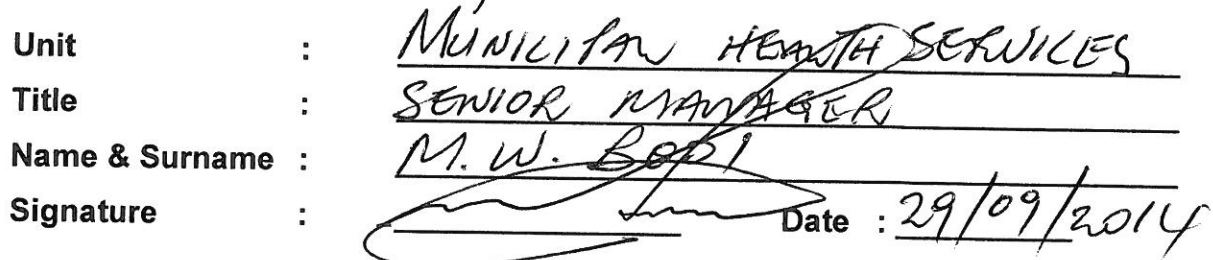 Unit : MUNICIPAL HEALTH SERVICES
Title : SENIOR MANAGER
Name & Surname : M. W. BODI
Signature : Date : 29/09/2014